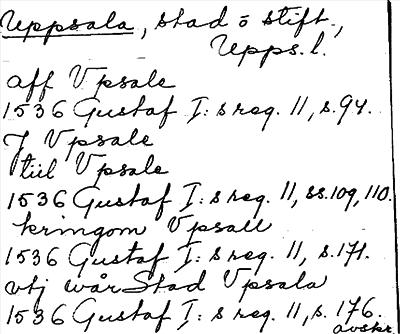 Uppsala, stad o stift.,
Upps. l.
aff Vpsale
1536 Gustaf I:s reg. 11, s. 94.
J Vpsale
tiil Vpsale
1536 Gustaf I:s reg. 11, ss. 109, 110.
kringom Vpsall
1536 Gustaf I:s reg. 11, s. 171.
vtj wår Stad Vpsala
1536 Gustaf I:s reg. 11, s. 176.
avskr.